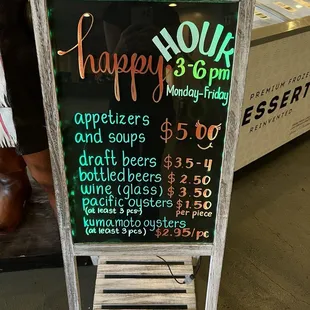 happy HOUR
3-6 pm
Monday-Friday
appetizers
and soups $5.00
draft beers $3.5-4
bottled beers $2.50
wine (glass) $3.50
pacific oysters $1.50
(at least 3 pcs) per piece
kumamoto oysters
(at least 3 pcs) $2.95/pc
PREMIUM FROZE
ESSERT
REINVENTED